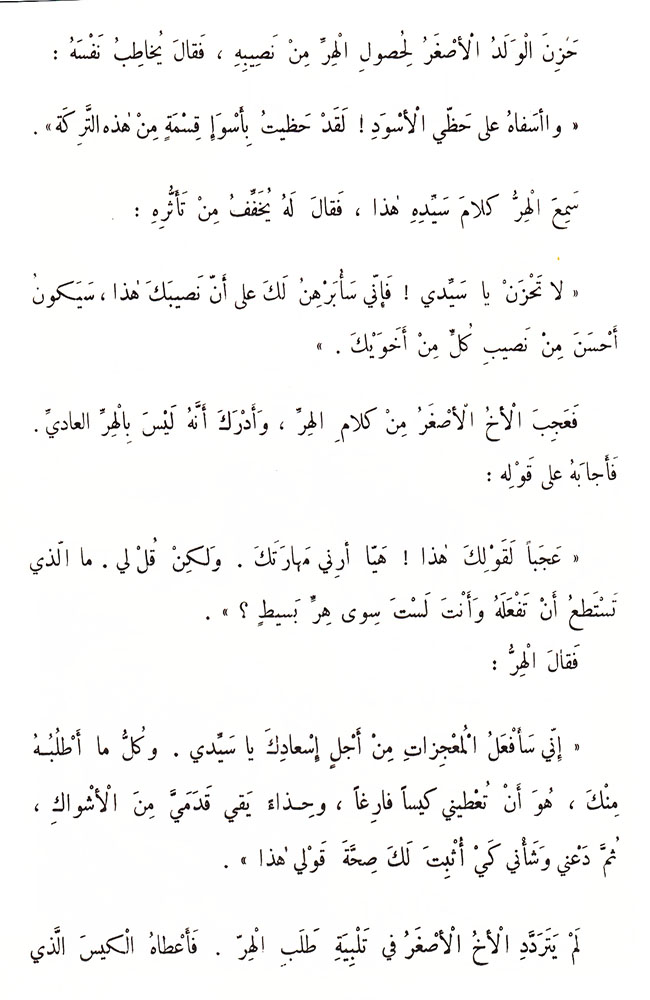 حَزِنَ الْوَلَدُ الْأصْغَرُ لِحُصولِ الْهِرِّ مِنْ نَصِيبِهِ ، فَقالَ يُخاطِبُ نَفْسَهُ :
« واأسَفاهُ على حَظّي الْأسْوَدِ ! لَقَدْ حَظيتُ بِأَسْوَإِ قِسْمَةٍ مِنْ هٰذه التَّرِكَةِ» .
سَمِعَ الْهِرُّ كلامَ سَيِّدِهِ هٰذا ، فَقالَ لَهُ يُخَفِّفُ مِنْ تَأَثُّرِهِ :
« لا تَحْزَنْ يا سَيِّدي ! فَإنّي سَأُبَرْهِنُ لَكَ على أَنّ نَصيبَكَ هٰذا ، سَيَكونُ
أَحْسَنَ مِنْ نَصيبِ كُلٍّ مِنْ أَخَوَيْكَ . »
فَعَجِبَ الْأخُ الْأصْغَرُ مِنْ كلامِ الهِرِّ ، وَأَدْرَكَ أَنَّهُ لَيْسَ بِالْهِرِّ العاديِّ .
فَأَجابَهُ على قَوْلِه :
« عَجَباً لَقَوْلِكَ هٰذا ! هَيّا أرِني مَهارَتَكَ . وَلكِنْ قُلْ لي . ما الّذي
تَسْتَطعُ أَنْ تَفْعَلَهُ وَأَنْتَ لَسْتَ سِوى هِرٍّ بَسيطٍ ؟ » .
فَقالَ الْهِرُّ :
« إنّي سَأَفْعَلُ الْمُعْجِزاتِ مِنْ أَجْلِ إسْعادِكَ يا سَيِّدي . وكُلُّ ما أَطْلُبُـهُ
مِنْكَ ، هُوَ أَنْ تُعْطيني كيساً فارِغاً ، وحِـذاءً يَقي قَدَمَيَّ مِنَ الْأشْواكِ ،
ثُمَّ دَعْني وَشَأْني كَيْ أُثْبِتَ لَكَ صِحَّةَ قَوْلي هٰذا » .
لَمْ يَتَرَدَّدِ الْأخُ الْأصْغَرُ في تَلْبِيَةِ طَلَبِ الْهِرّ . فَأَعْطاهُ الْكيسَ الَّذي